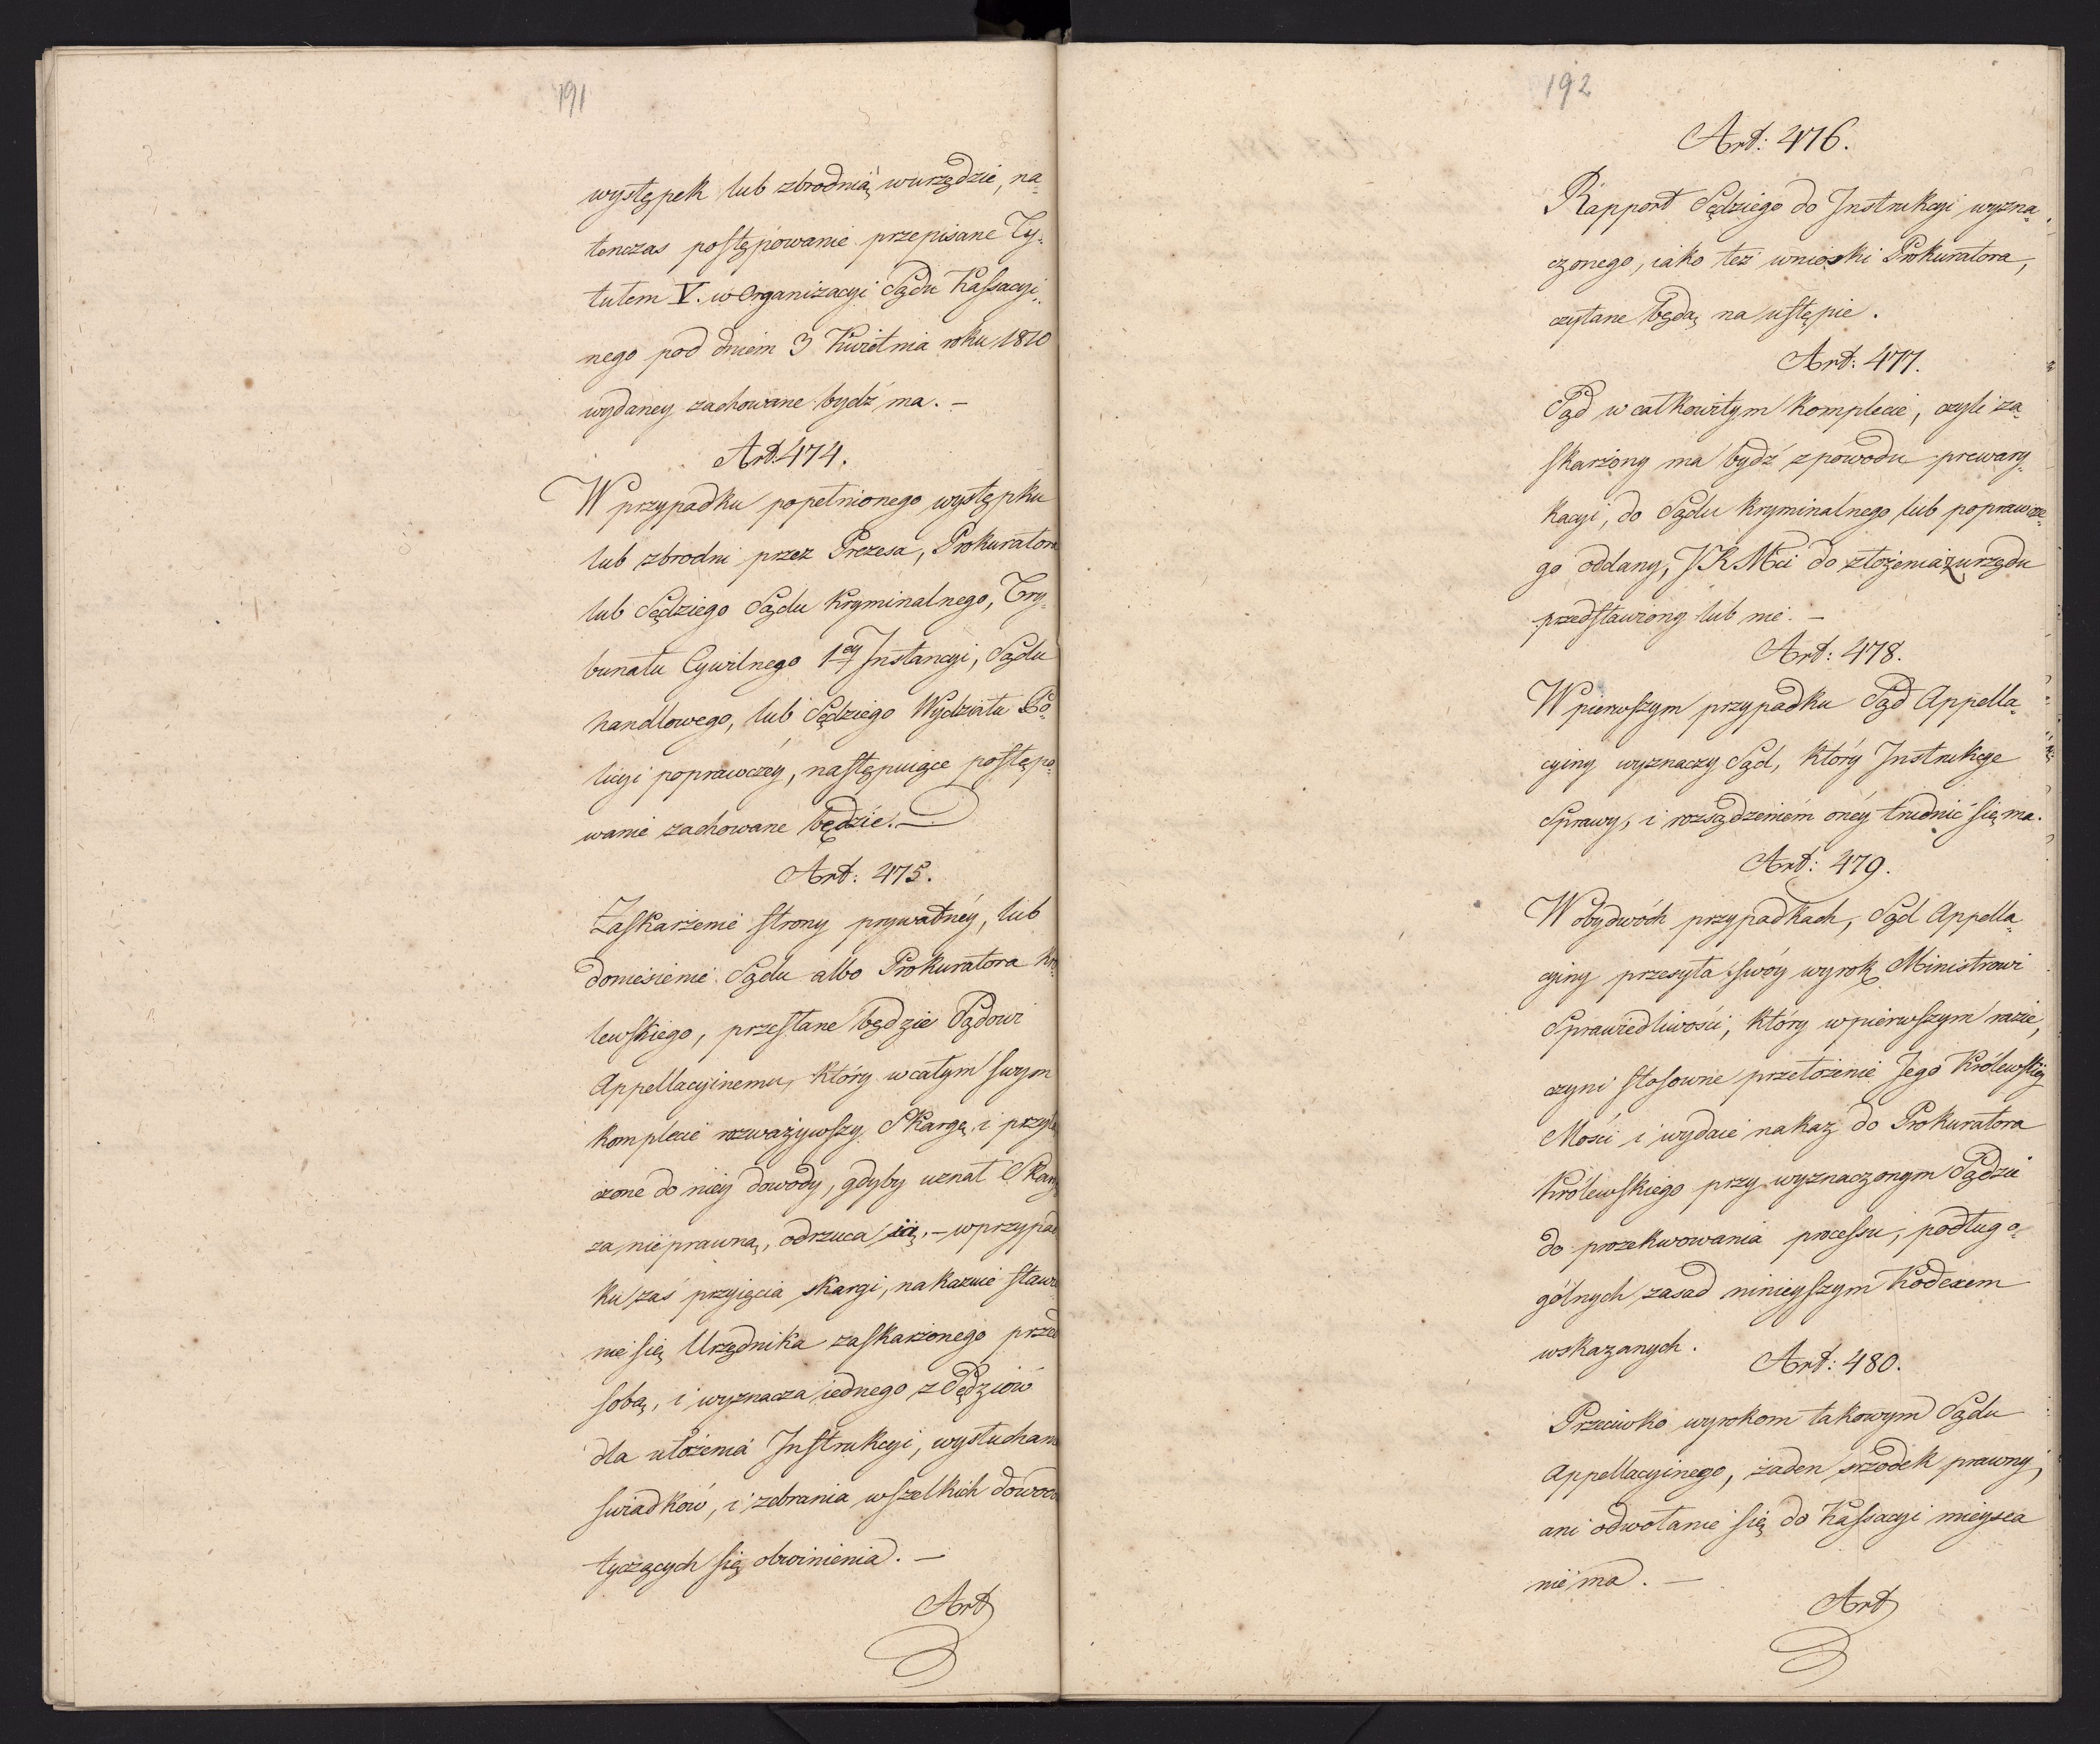 191
występek lub zbrodnią wurzędzie, na=
tenczas postępowanie przepisane Ty=
tułem V. w Organizacyi Sądu Kassacyi=
nego pod dniem 3 Kwietnia roku 1810
wydaney zachowane bydź ma. —
Art. 474.
W przypadku popełnionego występku
lub zbrodni przez Prezesa, Prokuratora
lub Sędziego Sądu Kryminalnego, Try=
bunału Cywilnego 1ey Instancyi, Sądu
handlowego, lub Sędziego Wydziału Po=
licyi poprawczéy, następuiące postępo=
wanie zachowane będzie. —
Art: 475.
Zaskarżenie strony prywatnéy, lub
doniesienie Sądu albo Prokuratora Kró=
lewskiego, przesłane będzie Sądowi
Appellacyinemu, który w całym swym
komplecie rozważywszy Skargę, i przyłą
czone do niéy dowody, gdyby uznał Skargę
za nieprawną, odrzuca ią, — w przypad
ku zaś przyięcia skargi, nakazuie stawie
nie się Urzędnika zaskarżonego przed
sobą, i wyznacza iednego z Sędziów
dla ułożenia Instrukcyi, wysłuchania
swiadków, i zebrania wszelkich dowodów
tyczących się obwinienia. —
Art
192
Art: 476.
Rapport Sędziego do Instrukcyi wyzna=
czonego, iako też wnioski Prokuratora,
czytane będą na ustępie.
Art: 477.
Sąd w całkowitym komplecie, czyli za=
skarżony ma bydź z powodu prewary=
kacyi, do Sądu Kryminalnego lub poprawcze=
go oddany, JKMci do złożenia z urzędu
przedstawiony lub nie. —
Art: 478.
W pierwszym przypadku Sąd Appella=
cyiny wyznaczy Sąd, który Instrukcye
Sprawy, i rozsądzeniem onéy trudnić się ma.
Art: 479.
W obydwóch przypadkach, Sąd Appella=
cyiny przesyła swóy wyrok Ministrowi
Sprawiedliwości, który w pierwszym razie,
czyni stosowne przełożenie Jego Królewskiéy
Mości i wydaie nakaz do Prokuratora
Królewskiego przy wyznaczonym Sądzie
do prozekwowania processu, podług o=
gólnych zasad ninieyszym Kodexem
wskazanych.
Art: 480.
Przeciwko wyrokom takowym Sądu
Appellacyinego, żaden srzodek prawny,
ani odwołanie się do Kassacyi mieysca
nie ma. —
Art